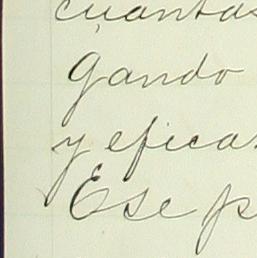 cuantas
gando
y efica
Ese p